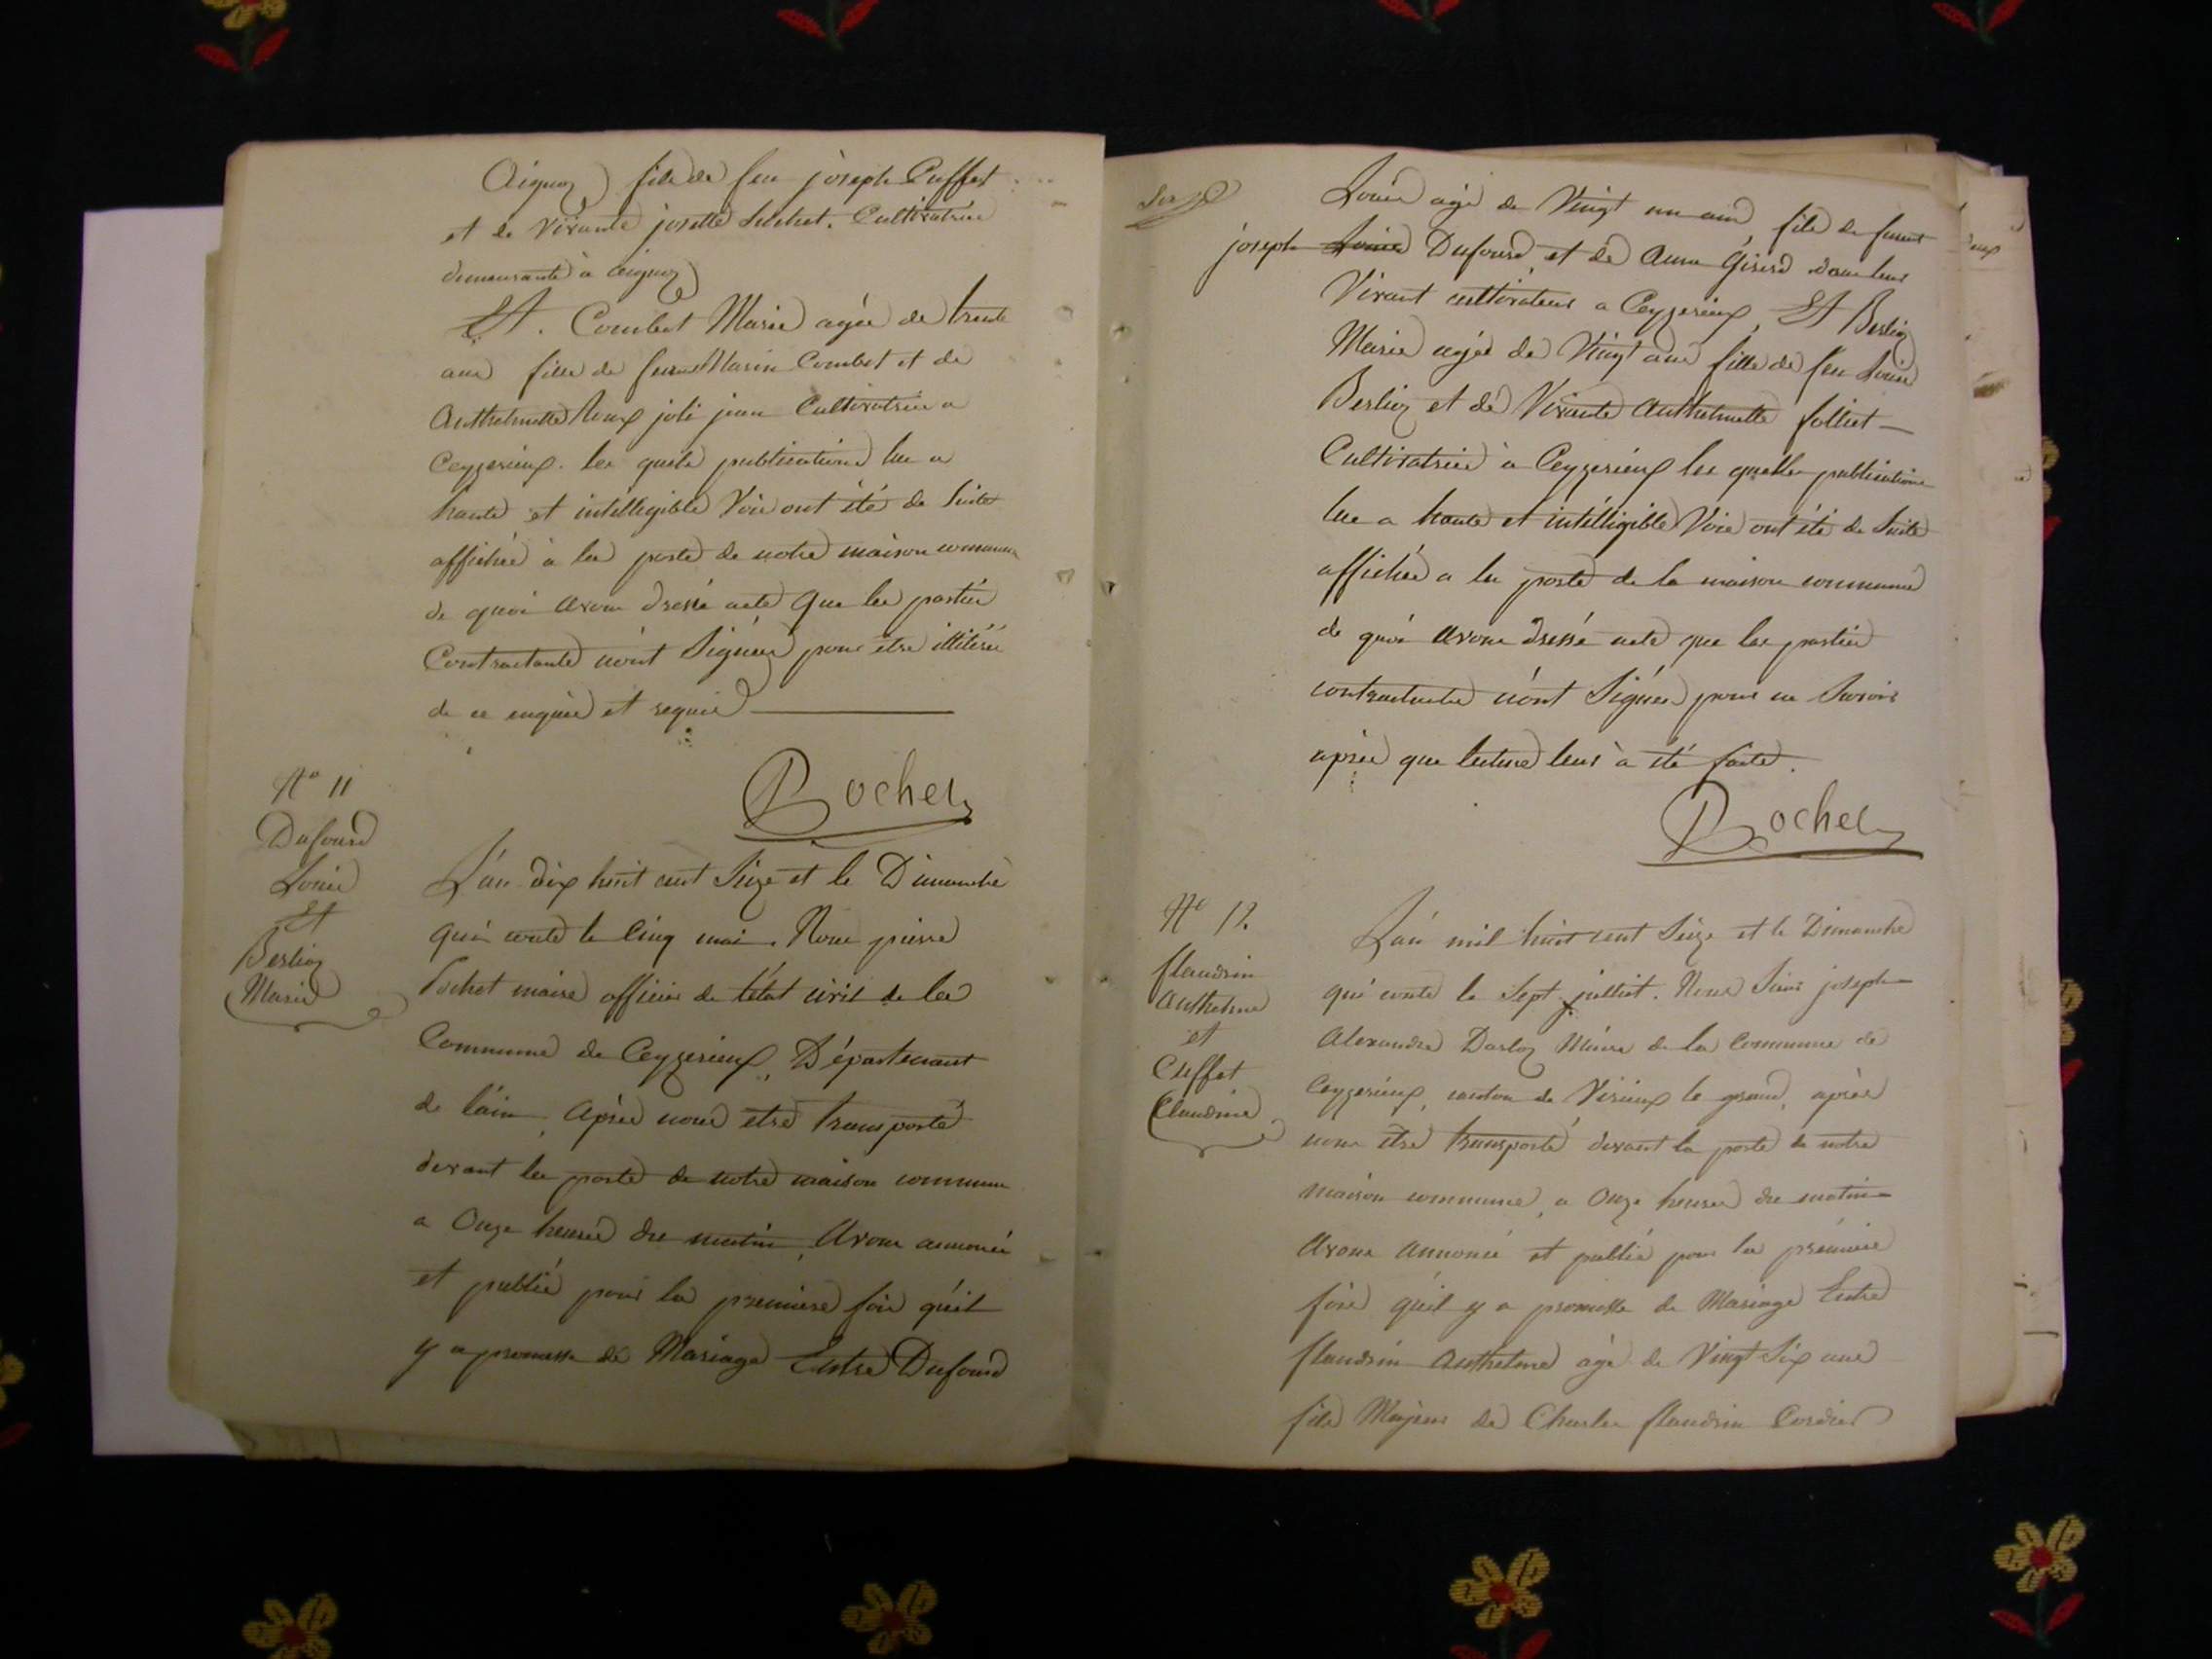 Aignoz fils de feu joseph Cuffet
et de vivante josette Suchet. Cultivatrice
demeurante à aignoz
Et. Combet Marie agée de trente
ans fille de feu Marin Combet et de
Anthelmette Roux joli jean Cultivatrice a
Ceyzerieux. les quels publications lue a
haute et intelligible Voix ont été de Suite
affichée à la porte de notre maison commune
de quoi avons dressé acte que les parties
Contractante n'ont Signées pour être illitérée
de ce enquis et requis
Rochet
N° 11
Dufourd
Louis
Et
Berlioz
Marie
L'an dix huit cent Seize et le Dimanche
qui conte le Cinq mai. Nous pierre
Rochet maire officier de l'état civil de la
Commune de Ceyzerieux, Département
de l'ain, Après nous etre transporté
devant la porte de notre maison commune
a Onze heures du matin, Avons annoncé
et publié pour la premiere fois qu'il
y a promesse de Mariage Entre Dufourd
Louis agé de Vingt un ans, fils de
joseph Louis Dufourd, et de Anne Girerd
Vivant cultivateur a Ceyzerieux, Et Berlioz
Marie agée de Vingt ans fille de feu Louis
Berlioz et de Vivante Anthelmette folliet
Cultivatrice à Ceyzerieux les quelle publications
lue a haute et intélligible Voix ont été de Suite
affichée a la porte de la maison commune
de quoi avons dressé acte que les parties
contractante n'ont Signées pour ne Savoir
après que lecture leur à été faite.
Rochet
N° 12.
flandrin
Anthelme
et
Cuffet
Claudine
L'an mil huit cent Seize et le Dimanche
qui conte le Sept juillet. Nous joseph
Alexandre Darloz Maire de la Commune de
Ceyzerieux, canton de Virieux le grand, après
nous être transporté devant la porte de notre
maison commune, a Onze heures du matin
Avons Annoncé et publié pour la prémiere
fois qu'il y a promesse de Mariage Entre
flandrin Anthelme agé de Vingt Six ans
fils Majeur de Charles flandrin Cordier